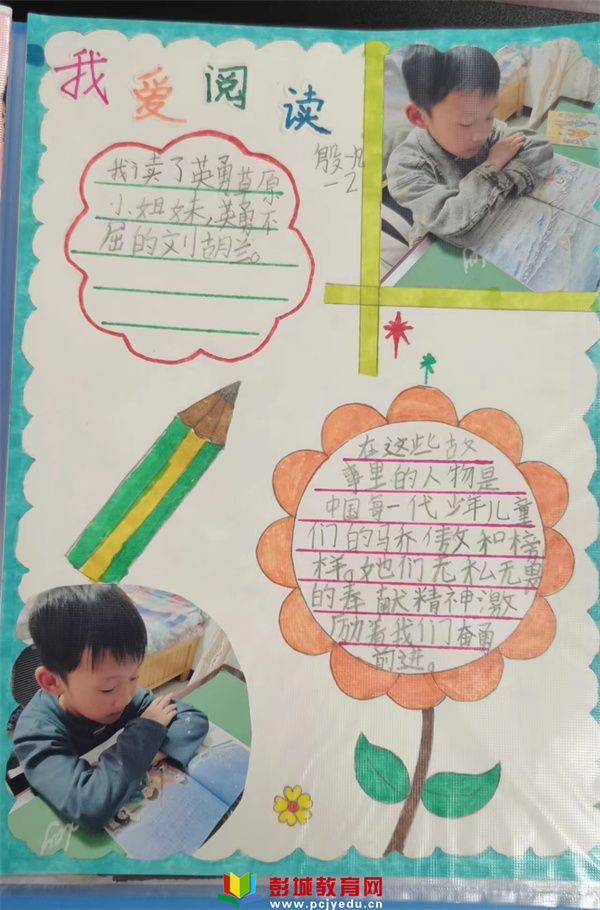 我爱阅读
殷一凡
一2
我读了英勇草原
小姐妹,英勇不
屈的刘胡兰。
在这些故
事里的人物是
中国每一代少年儿童
们的骄傲和榜
样。她们无私无畏
的奉献精神激
励着我们奋勇
前进。
彭城教育网
www.pcjyedu.cn